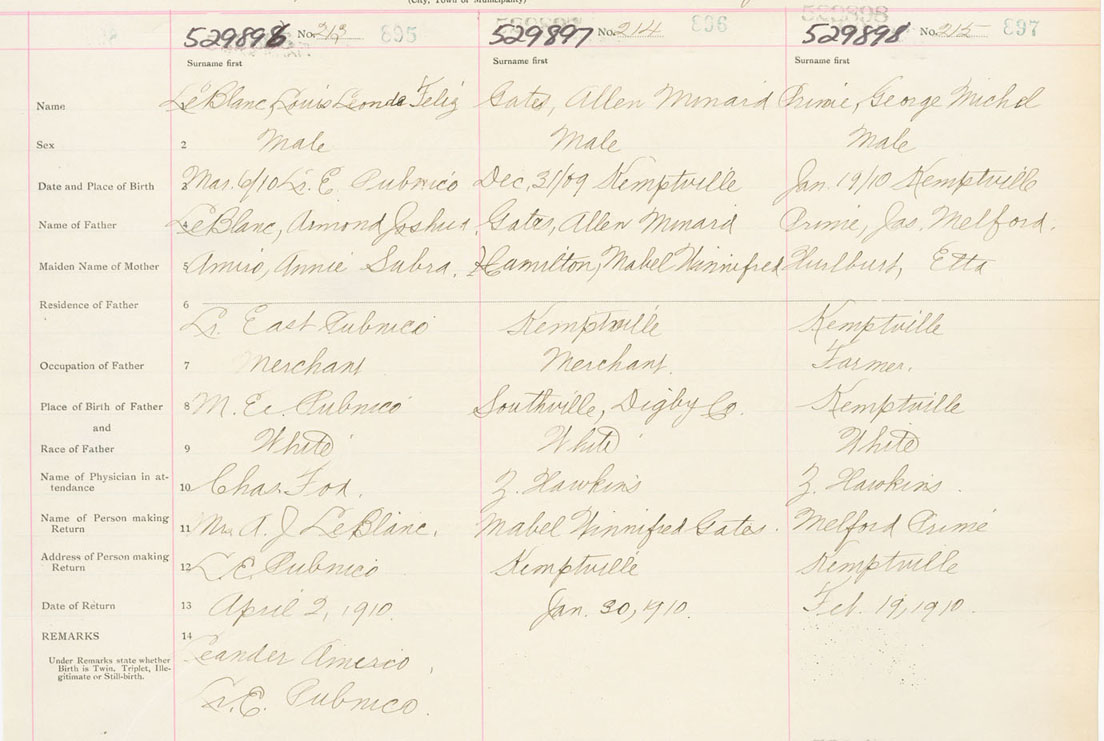 (City, Town or Municipality)
529896 No. 213 895 529897 No. 214 896 529898 No. 215 897
Surname first Surname first Surname first
Name 1 LeBlanc, Louis Leonde Feliz Gates, Allen Minard Prime, George Michel
Sex 2 Male Male Male
Date and Place of Birth 3 Mar. 6/10 Lr. E. Pubnico Dec. 31/09 Kemptville Jan. 19/10 Kemptville
Name of Father 4 LeBlanc, Armond Joshua Gates, Allen Minard Prime, Jas. Melford.
Maiden Name of Mother 5 Amiro, Annie Hamilton, Mabel Winnifred Hurlburt, Etta
Residence of Father 6
Lr. East Pubnico Kemptville Kemptville
Occupation of Father 7 Merchant Merchant. Farmer.
Place of Birth of Father 8 M. E. Pubnico Southville, Digby Co. Kemptville
and
Race of Father 9 White White White
Name of Physician in at-
tendance 10 Chas. Fox. Z. Hawkins Z. Hawkins.
Name of Person making
Return 11 Mrs. A. J. LeBlanc. Mabel Winnifred Gates. Melford Prime
Address of Person making
Return 12 L. E. Pubnico Kemptville Kemptville
Date of Return 13 April 2, 1910. Jan. 30, 1910. Feb. 19, 1910.
REMARKS 14
Under Remarks state whether
Birth is Twin, Triplet, Ille-
gitimate or Still-birth.
Leander
Lr. E. Pubnico.